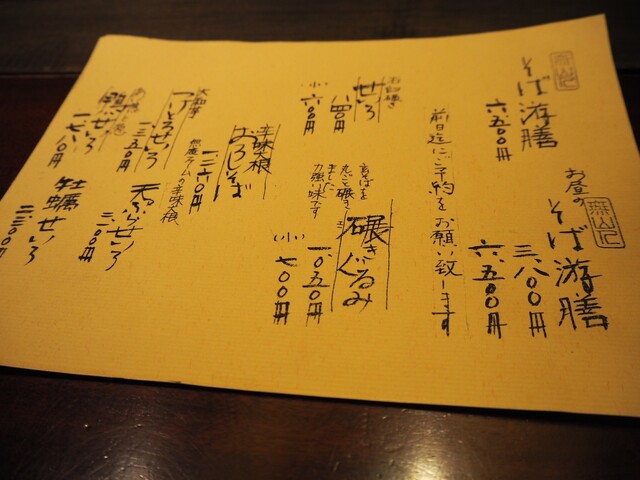 そば游膳
六、五〇〇円
お昼の
そば游膳
三、八〇〇円
六、五〇〇円
前日迄にご予約をお願い致します
石臼碾き
せいろ
八四〇円
小 六〇〇円
玄そばを
丸ごと碾き
きました
力強い味です
碾きぐるみ
一、〇五〇円
小 七〇〇円
辛味大根
おろしそば
一、二六〇円
大和芋
つけとろせいろ
一、三五〇円
鴨せいろ
一、七八〇円
天ぷらせいろ
牡蠣せいろ